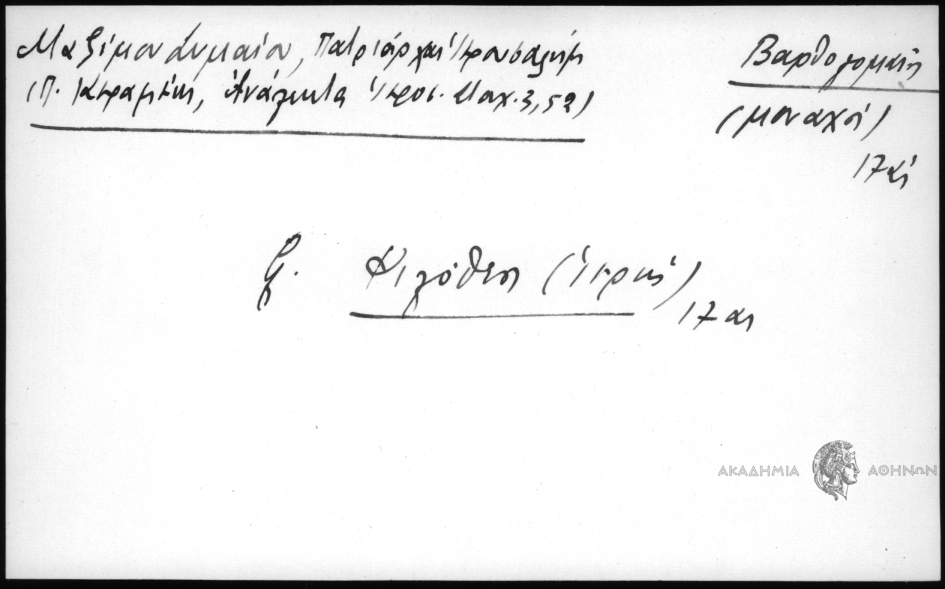 Μαξίμου Συμαίου, Πατριάρχαι Ἱεροσολύμων
(Π. Κεραμέως, Ἀνάλεκτα Ἱεροσ. Σταχ. 3, 52)
Βαρθολομαῖος
(μοναχός)
17 αι
Φιλόθεος (Ἱερεύς)
17 αι
ΑΚΑΔΗΜΙΑ ΑΘΗΝΩΝ